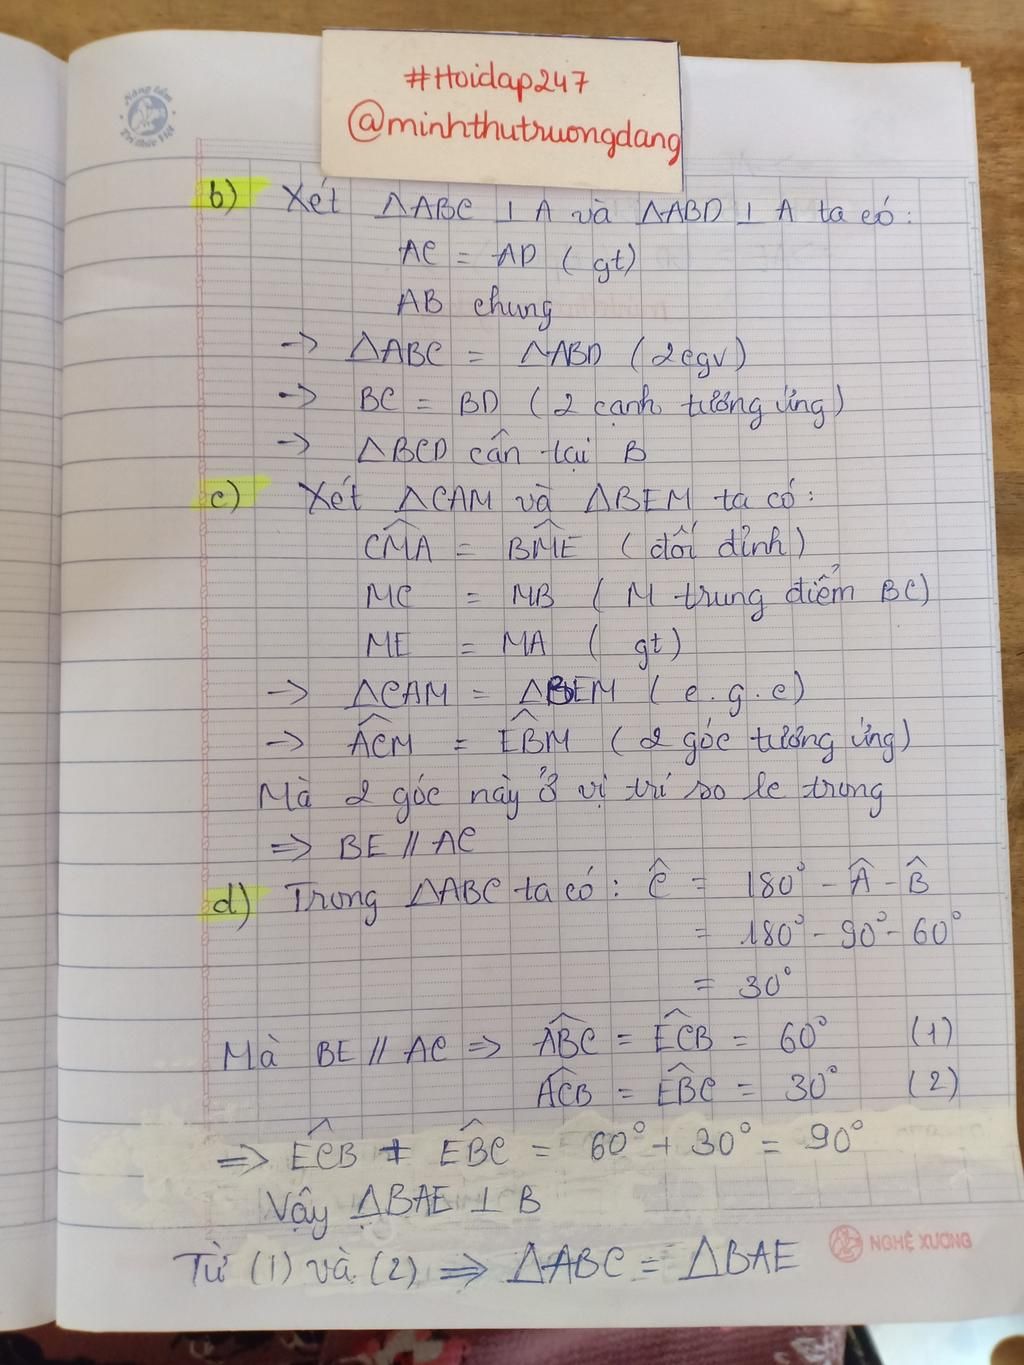 Nâng tầm
Tri thức Việt
#Hoidap247
@minhthutruongdang
b) Xét ΔABC ⊥ A và ΔABD ⊥ A ta có:
AC = AD ( gt)
AB chung
→ ΔABC = ΔABD ( 2cgv)
→ BC = BD ( 2 cạnh tương ứng)
→ ΔBCD cân tại B
c) Xét ΔCAM và ΔBEM ta có:
\widehat{CMA} = \widehat{BME} ( đối đỉnh)
MC = MB ( M trung điểm BC)
ME = MA ( gt)
→ ΔCAM = ΔBEM ( c.g.c)
→ \widehat{ACM} = \widehat{EBM} ( 2 góc tương ứng)
Mà 2 góc này ở vị trí so le trong
⇒ BE // AC
d) Trong ΔABC ta có: \widehat{C} = 180° - \widehat{A} - \widehat{B}
= 180° - 90° - 60°
= 30°
Mà BE // AC ⇒ \widehat{ABC} = \widehat{ECB} = 60° (1)
\widehat{ACB} = \widehat{EBC} = 30° (2)
⇒ \widehat{ECB} + \widehat{EBC} = 60° + 30° = 90°
Vậy ΔBAE ⊥ B
NGHỆ XƯƠNG
Từ (1) và (2) ⇒ ΔABC = ΔBAE